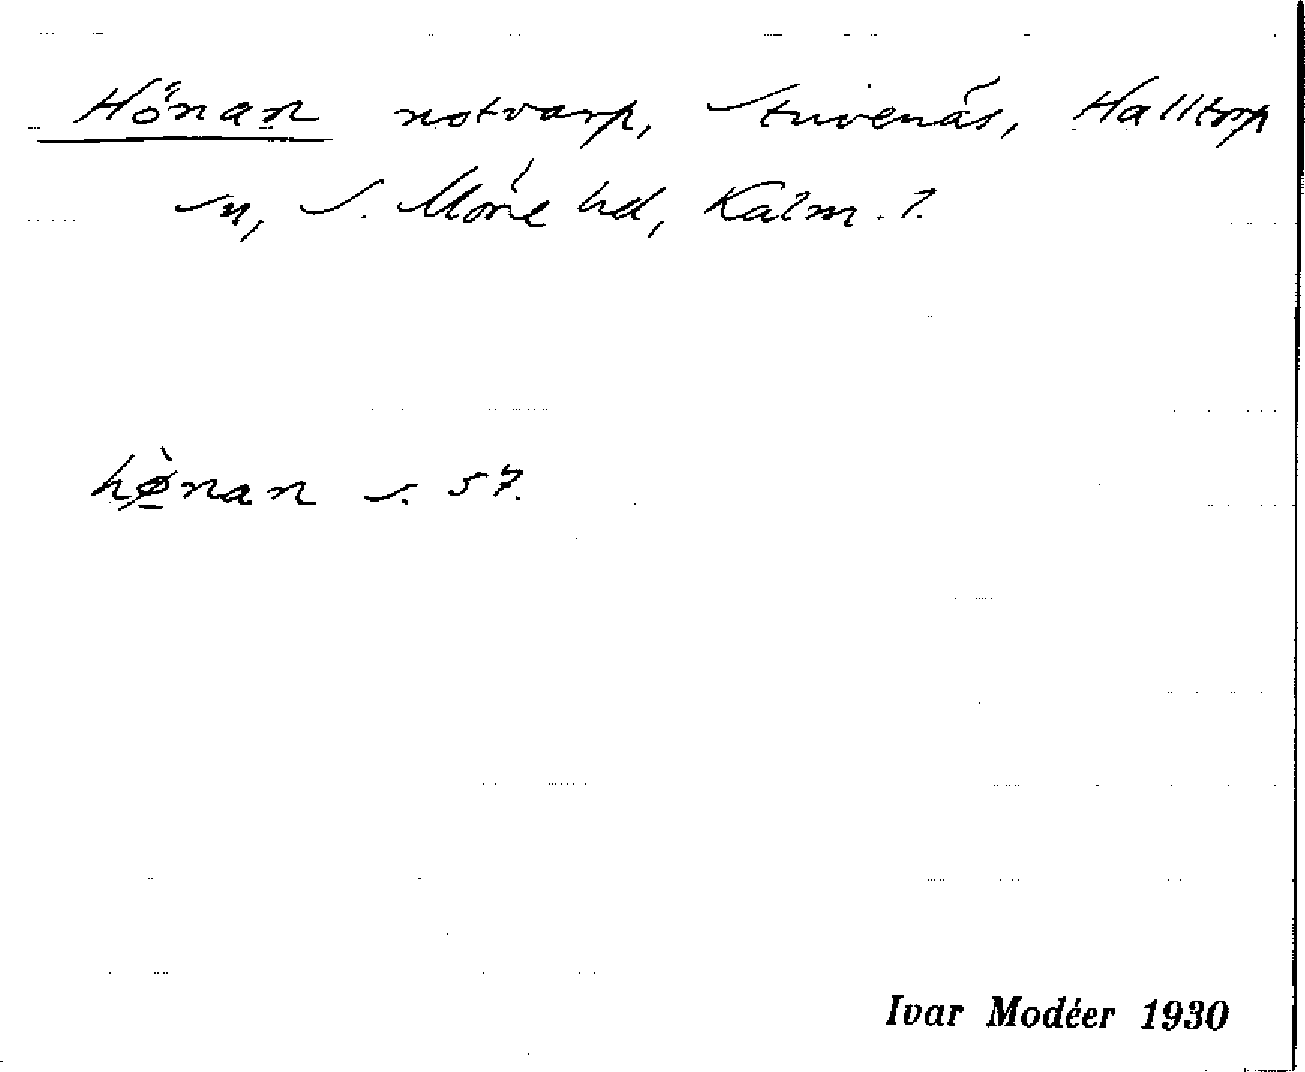 Hönan notvarp, Stuvenäs, Halltorp
sn, S. Möre hd, Kalm. l.
hø̀nan s. 57.
Ivar Modéer 1930